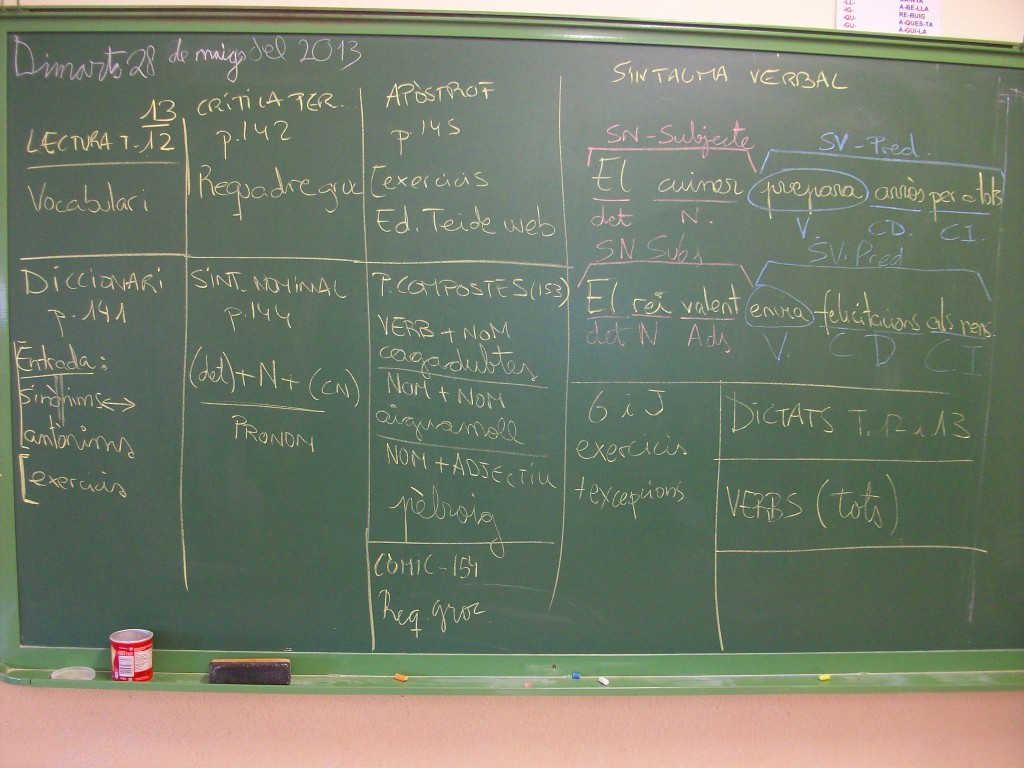 -LL-
-IG-
-QU-
-GU-
A-BE-LLA
RE-BUIG
A-QUES-TA
À-GUI-LA
Dimarts 28 de maig del 2013
LECTURA T. 13
12
Vocabulari
CRÍTICA TER.
p. 142
Requadre groc
APÒSTROF
p. 145
[exercicis
Ed. Teide web
DICCIONARI
p. 141
Entrada:
Sinònims ↔
antònims
[exercicis
SINT. NOMINAL
p. 144
(det) + N + (CN)
PRONOM
P. COMPOSTES (153)
VERB + NOM
cagadubtes
NOM + NOM
aiguamoll
NOM + ADJECTIU
pèlroig
CÒMIC - 154
Req groc
SINTAGMA VERBAL
SN - Subjecte SV - Pred.
El cuiner prepara arròs per a tots
det N. V. CD. CI.
SN Subj SV. Pred
El rei valent envia felicitacions als nens.
det N Adj V. CD C.I
G i J
exercicis
+ excepcions
DICTATS T. 12 i 13
VERBS (tots)